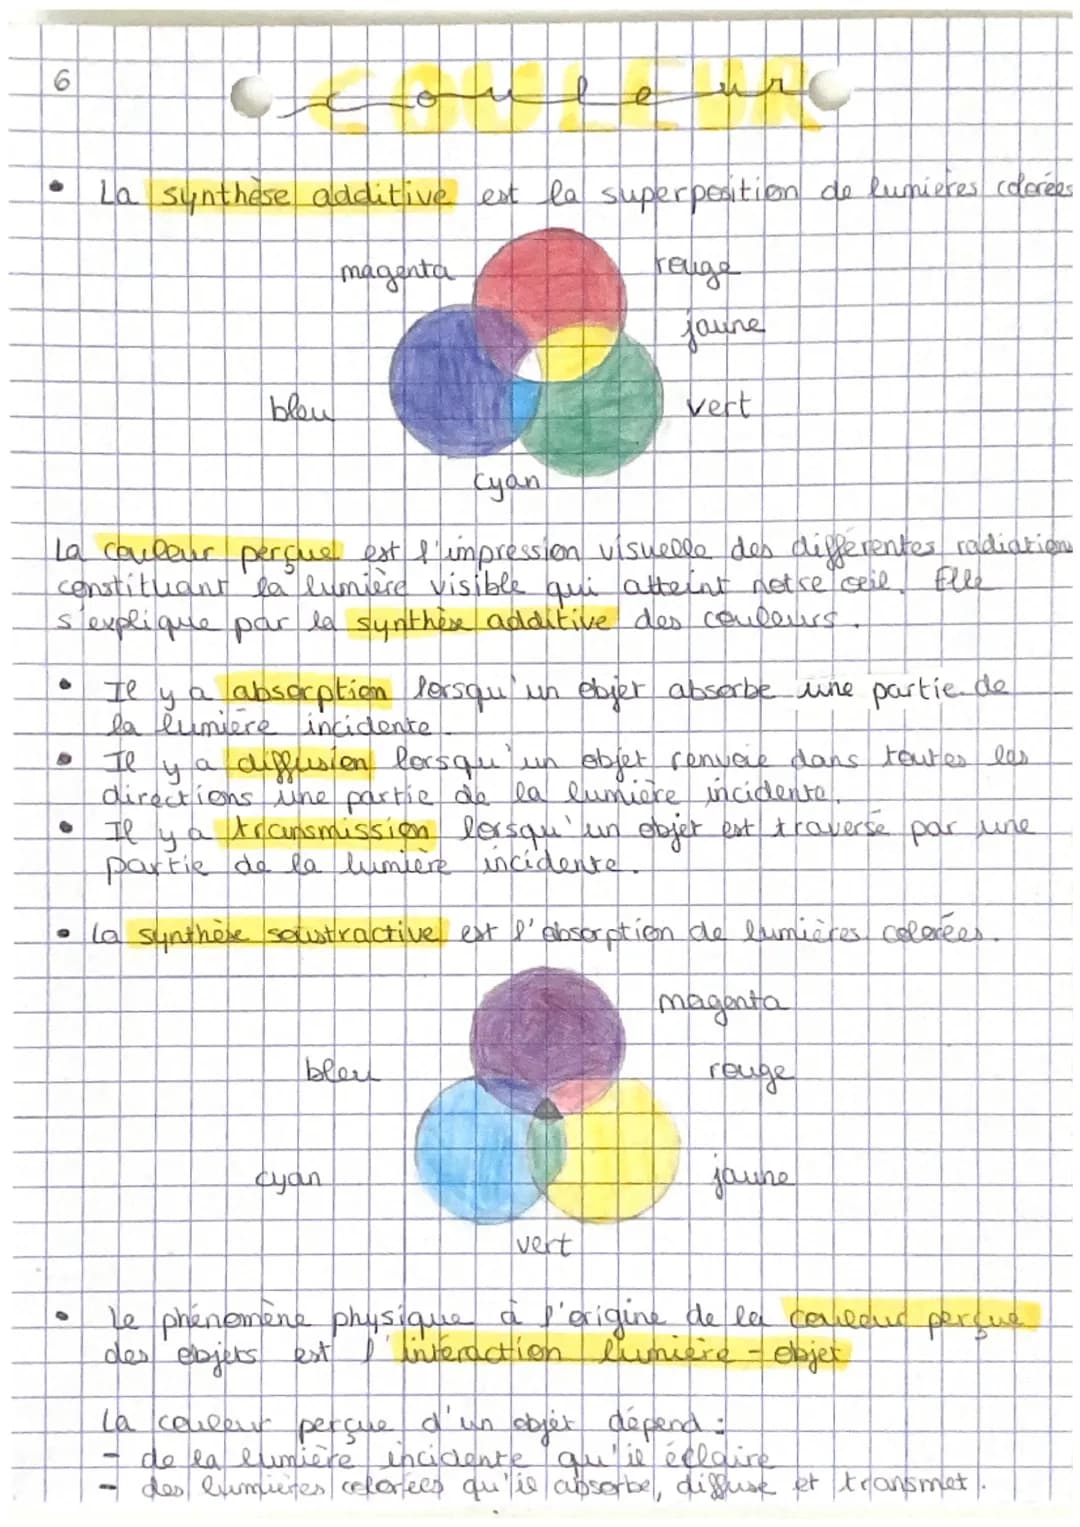 6
COULEUR
couleur
• La synthèse additive est la superposition de lumières colorées
magenta
rouge
jaune
bleu
vert
cyan
La couleur perçue est l'impression visuelle des différentes radiations
constituant la lumière visible qui atteint notre oeil. Elle
s'explique par la synthèse additive des couleurs.
• Il y a absorption lorsqu'un objet absorbe une partie de
la lumière incidente.
• Il y a diffusion lorsqu'un objet renvoie dans toutes les
directions une partie de la lumière incidente.
• Il y a transmission lorsqu'un objet est traversé par une
partie de la lumière incidente.
• La synthèse soustractive est l'absorption de lumières colorées.
magenta
bleu
rouge
cyan
jaune
vert
• Le phénomène physique à l'origine de la couleur perçue
des objets est l'intéraction lumière - objet
La couleur perçue d'un objet dépend :
- de la lumière incidente qu'il éclaire
- des lumières colorées qu'il absorbe, diffuse et transmet.